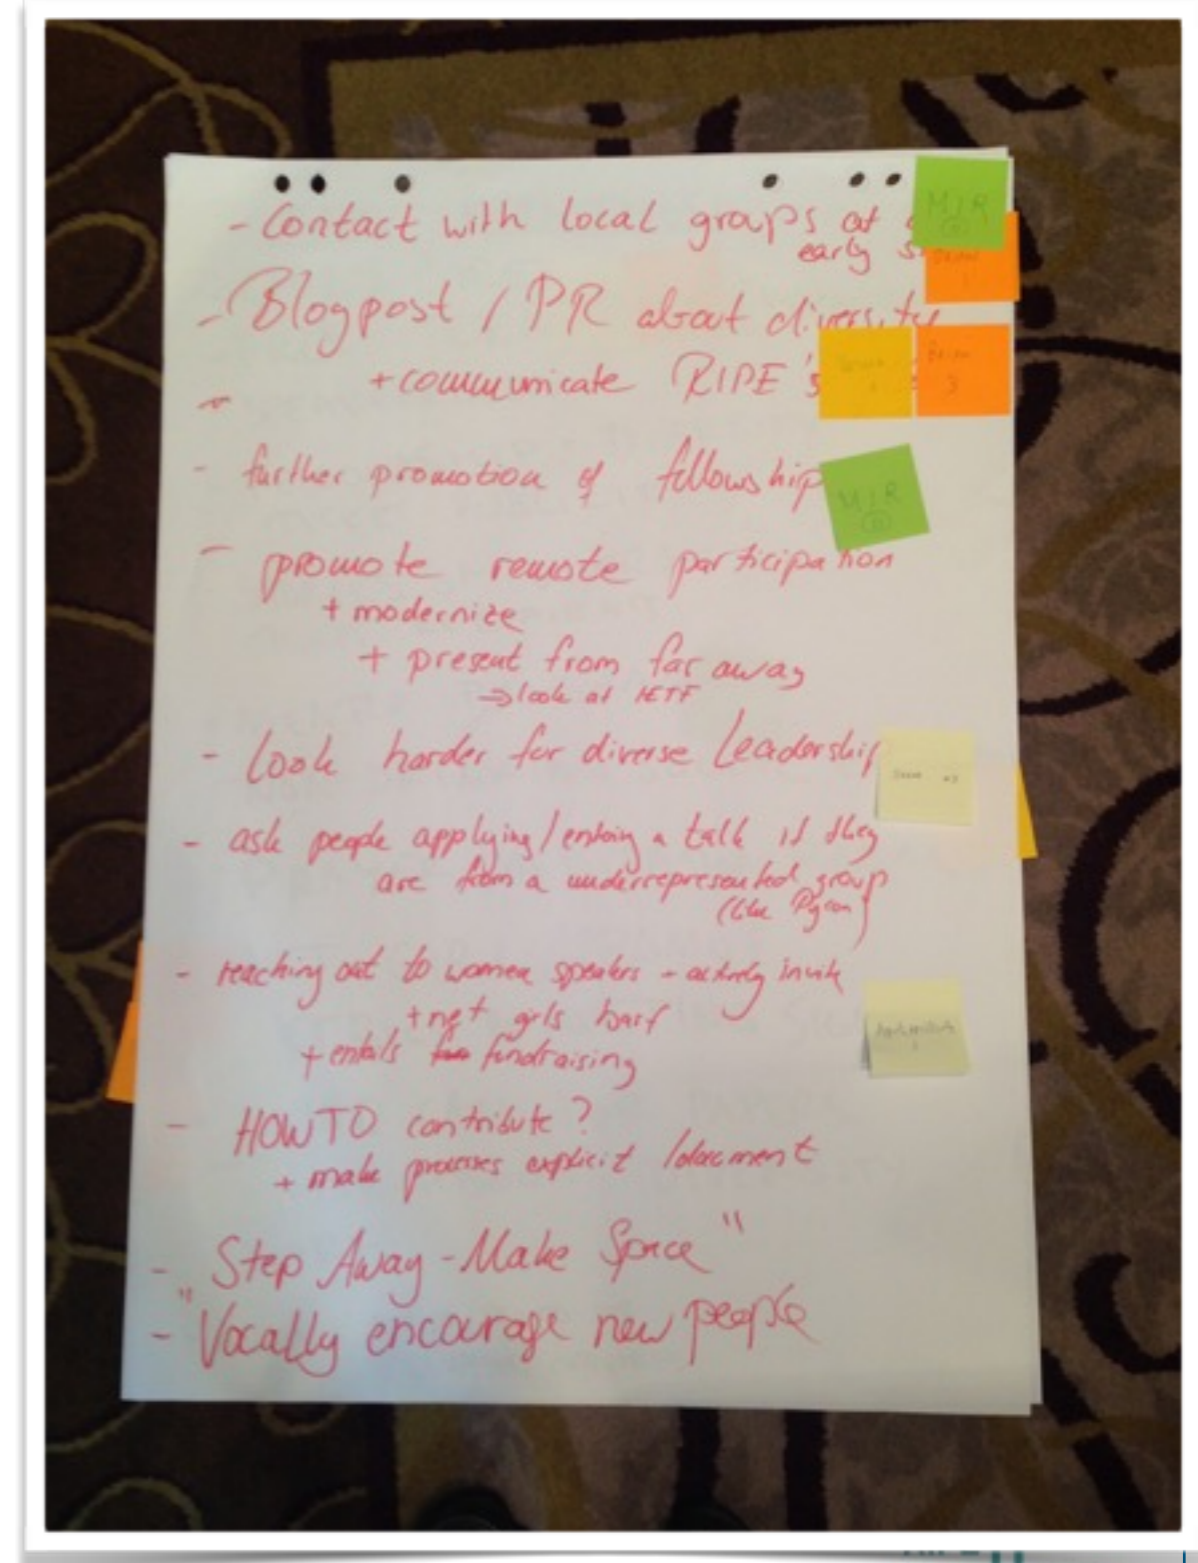 - Contact with local groups at
early
MIR
- Blogpost / PR about diversity
+ communicate RIPE's
3
- further promotion of fellowship
MIR
- promote remote participation
+ modernize
+ present from far away
⇒ look at IETF
- Look harder for diverse Leadership
- ask people applying/ a talk if they
are from a underrepresented group
(like Pycon)
- reaching out to women speakers - actively invite
+ net girls
+ entails fundraising
- HOWTO contribute?
+ make processes explicit / document
- "Step Away - Make Space"
- Vocally encourage new people